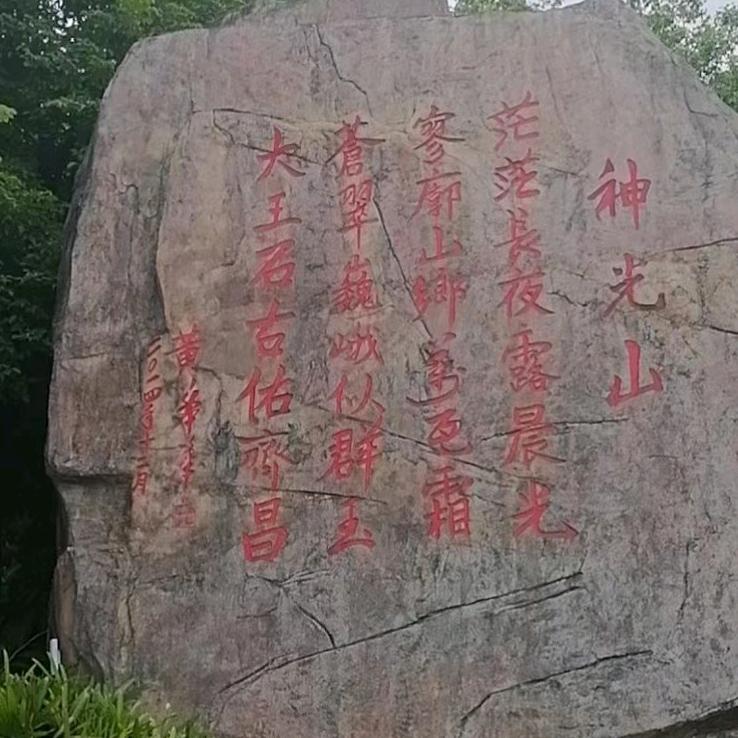 神光山
茫茫長夜露晨光
寥廓山鄉萬瓦霜
蒼翠巍峨似群玉
大王石古佑齊昌
黄
二〇一四年十二月